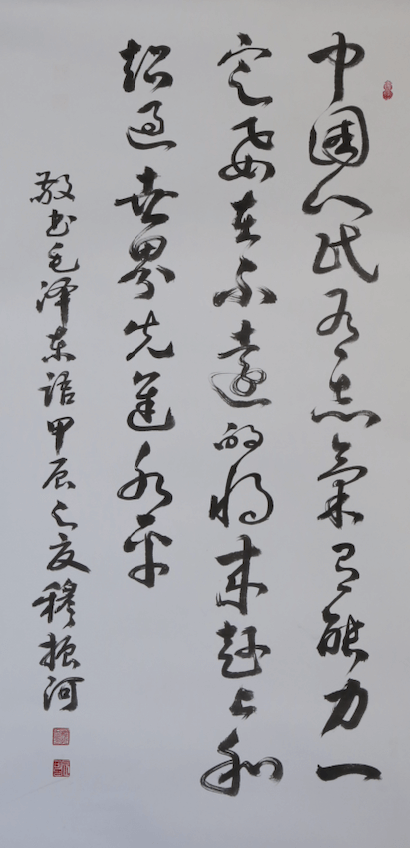 中国人民有志气有能力一
定要在不远的将来赶上和
超过世界先进水平
敬书毛泽东语甲辰之夏穆振河